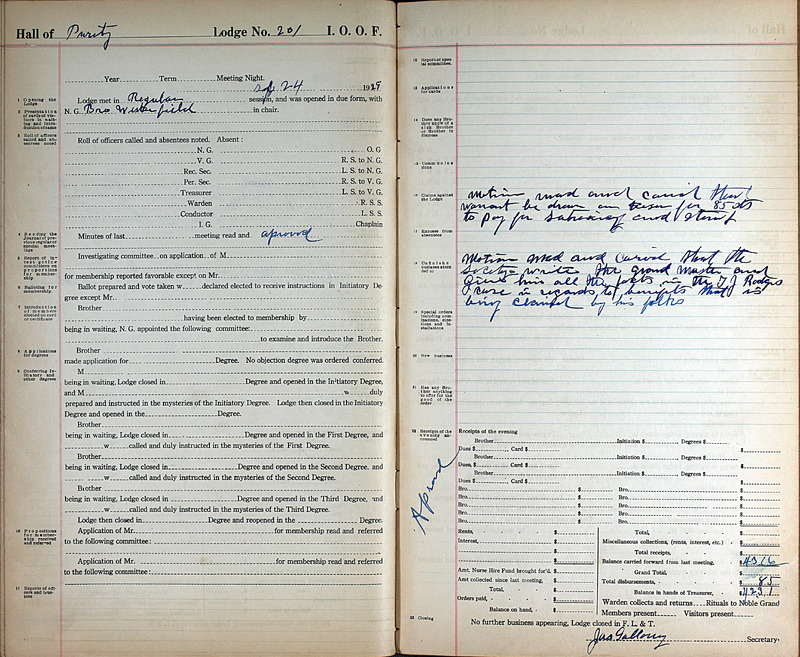 Hall of Purity Lodge No. 201 I. O. O. F.
Year Term Meeting Night.
Sep 24 1929
1 Opening the Lodge
Lodge met in Regular session, and was opened in due form, with
2 Presentation of cards of visitors in waiting and introduction of same
N. G. Bro in chair.
3 Roll of officers called and absentees noted
Roll of officers called and absentees noted. Absent:
N. G. O. G
V. G. R. S. to N. G.
Rec. Sec. L. S. to N. G.
Per. Sec. R. S. to V. G.
Treasurer L. S. to V. G.
Warden R. S. S.
Conductor L. S. S.
I. G. Chaplain
4 Reading the Journal of previous regular or special meetings
Minutes of last meeting read and aproved
5 Report of investigating committees on propositions for membership
Investigating committee on application of M
for membership reported favorable except on Mr.
6 Balloting for membership
Ballot prepared and vote taken w declared elected to receive instructions in Initiatory De-
gree except Mr.
7 Introduction of members elected on card or certificate
Brother
having been elected to membership by
being in waiting, N. G. appointed the following committee:
to examine and introduce the Brother.
8 Applications for degrees
Brother
made application for Degree. No objection degree was ordered conferred.
9 Conferring Initiatory and other degrees
M
being in waiting, Lodge closed in Degree and opened in the Initiatory Degree,
and M w duly
prepared and instructed in the mysteries of the Initiatory Degree. Lodge then closed in the Initiatory
Degree and opened in the Degree.
Brother
being in waiting, Lodge closed in Degree and opened in the First Degree, and
w called and duly instructed in the mysteries of the First Degree.
Brother
being in waiting, Lodge closed in Degree and opened in the Second Degree, and
w called and duly instructed in the mysteries of the Second Degree.
Brother
being in waiting, Lodge closed in Degree and opened in the Third Degree, and
w called and duly instructed in the mysteries of the Third Degree.
Lodge then closed in Degree and reopened in the Degree.
10 Propositions for membership received and referred
Application of Mr. for membership read and referred
to the following committee:
Application of Mr. for membership read and referred
to the following committee:
11 Reports of officers and trustees
12 Report of special committees
13 Applications for cards
14 Does any Brother know of a sick Brother or Brother in distress
15 Communications
16 Claims against the Lodge
Motion mad and caried that
warant be drawn on for 85 cts
to pay for and
17 Excuses from absentees
18 Unfinished business attended to
Motion mad and caried that the
write the grand Master and
him all the facts in the T J Rodgers
case in regards to benefits that is
being claimed by his folks
19 Special orders including nominations, elections and installations
20 New business
21 Has any Brother anything to offer for the good of the order
22 Receipts of the evening announced
Receipts of the evening
Brother Initiation $ , Degrees $
Dues $ , Card $ $
Brother Initiation $ , Degrees $
Dues, $ , Card $ $
Brother Initiation $ , Degrees $
Dues $ , Card $ $
Bro. $ Bro. $
Bro. $ Bro. $
Bro. $ Bro. $
Bro. $ Bro. $
Aproved
Rents, $ Total, $
Interest, $ Miscellaneous collections, (rents, interest, etc.) $
$ Total receipts, $
$ Balance carried forward from last meeting, $ 4316
Amt. Nurse Hire Fund brought for'd. $ Grand Total, $
Amt collected since last meeting, $ Total disbursements, $ 85
Total, $ Balance in hands of Treasurer, $ 4231
Orders paid, $ Warden collects and returns Rituals to Noble Grand
Balance on hand, $ Members present Visitors present
23 Closing
No further business appearing, Lodge closed in F. L. & T.
Secretary.